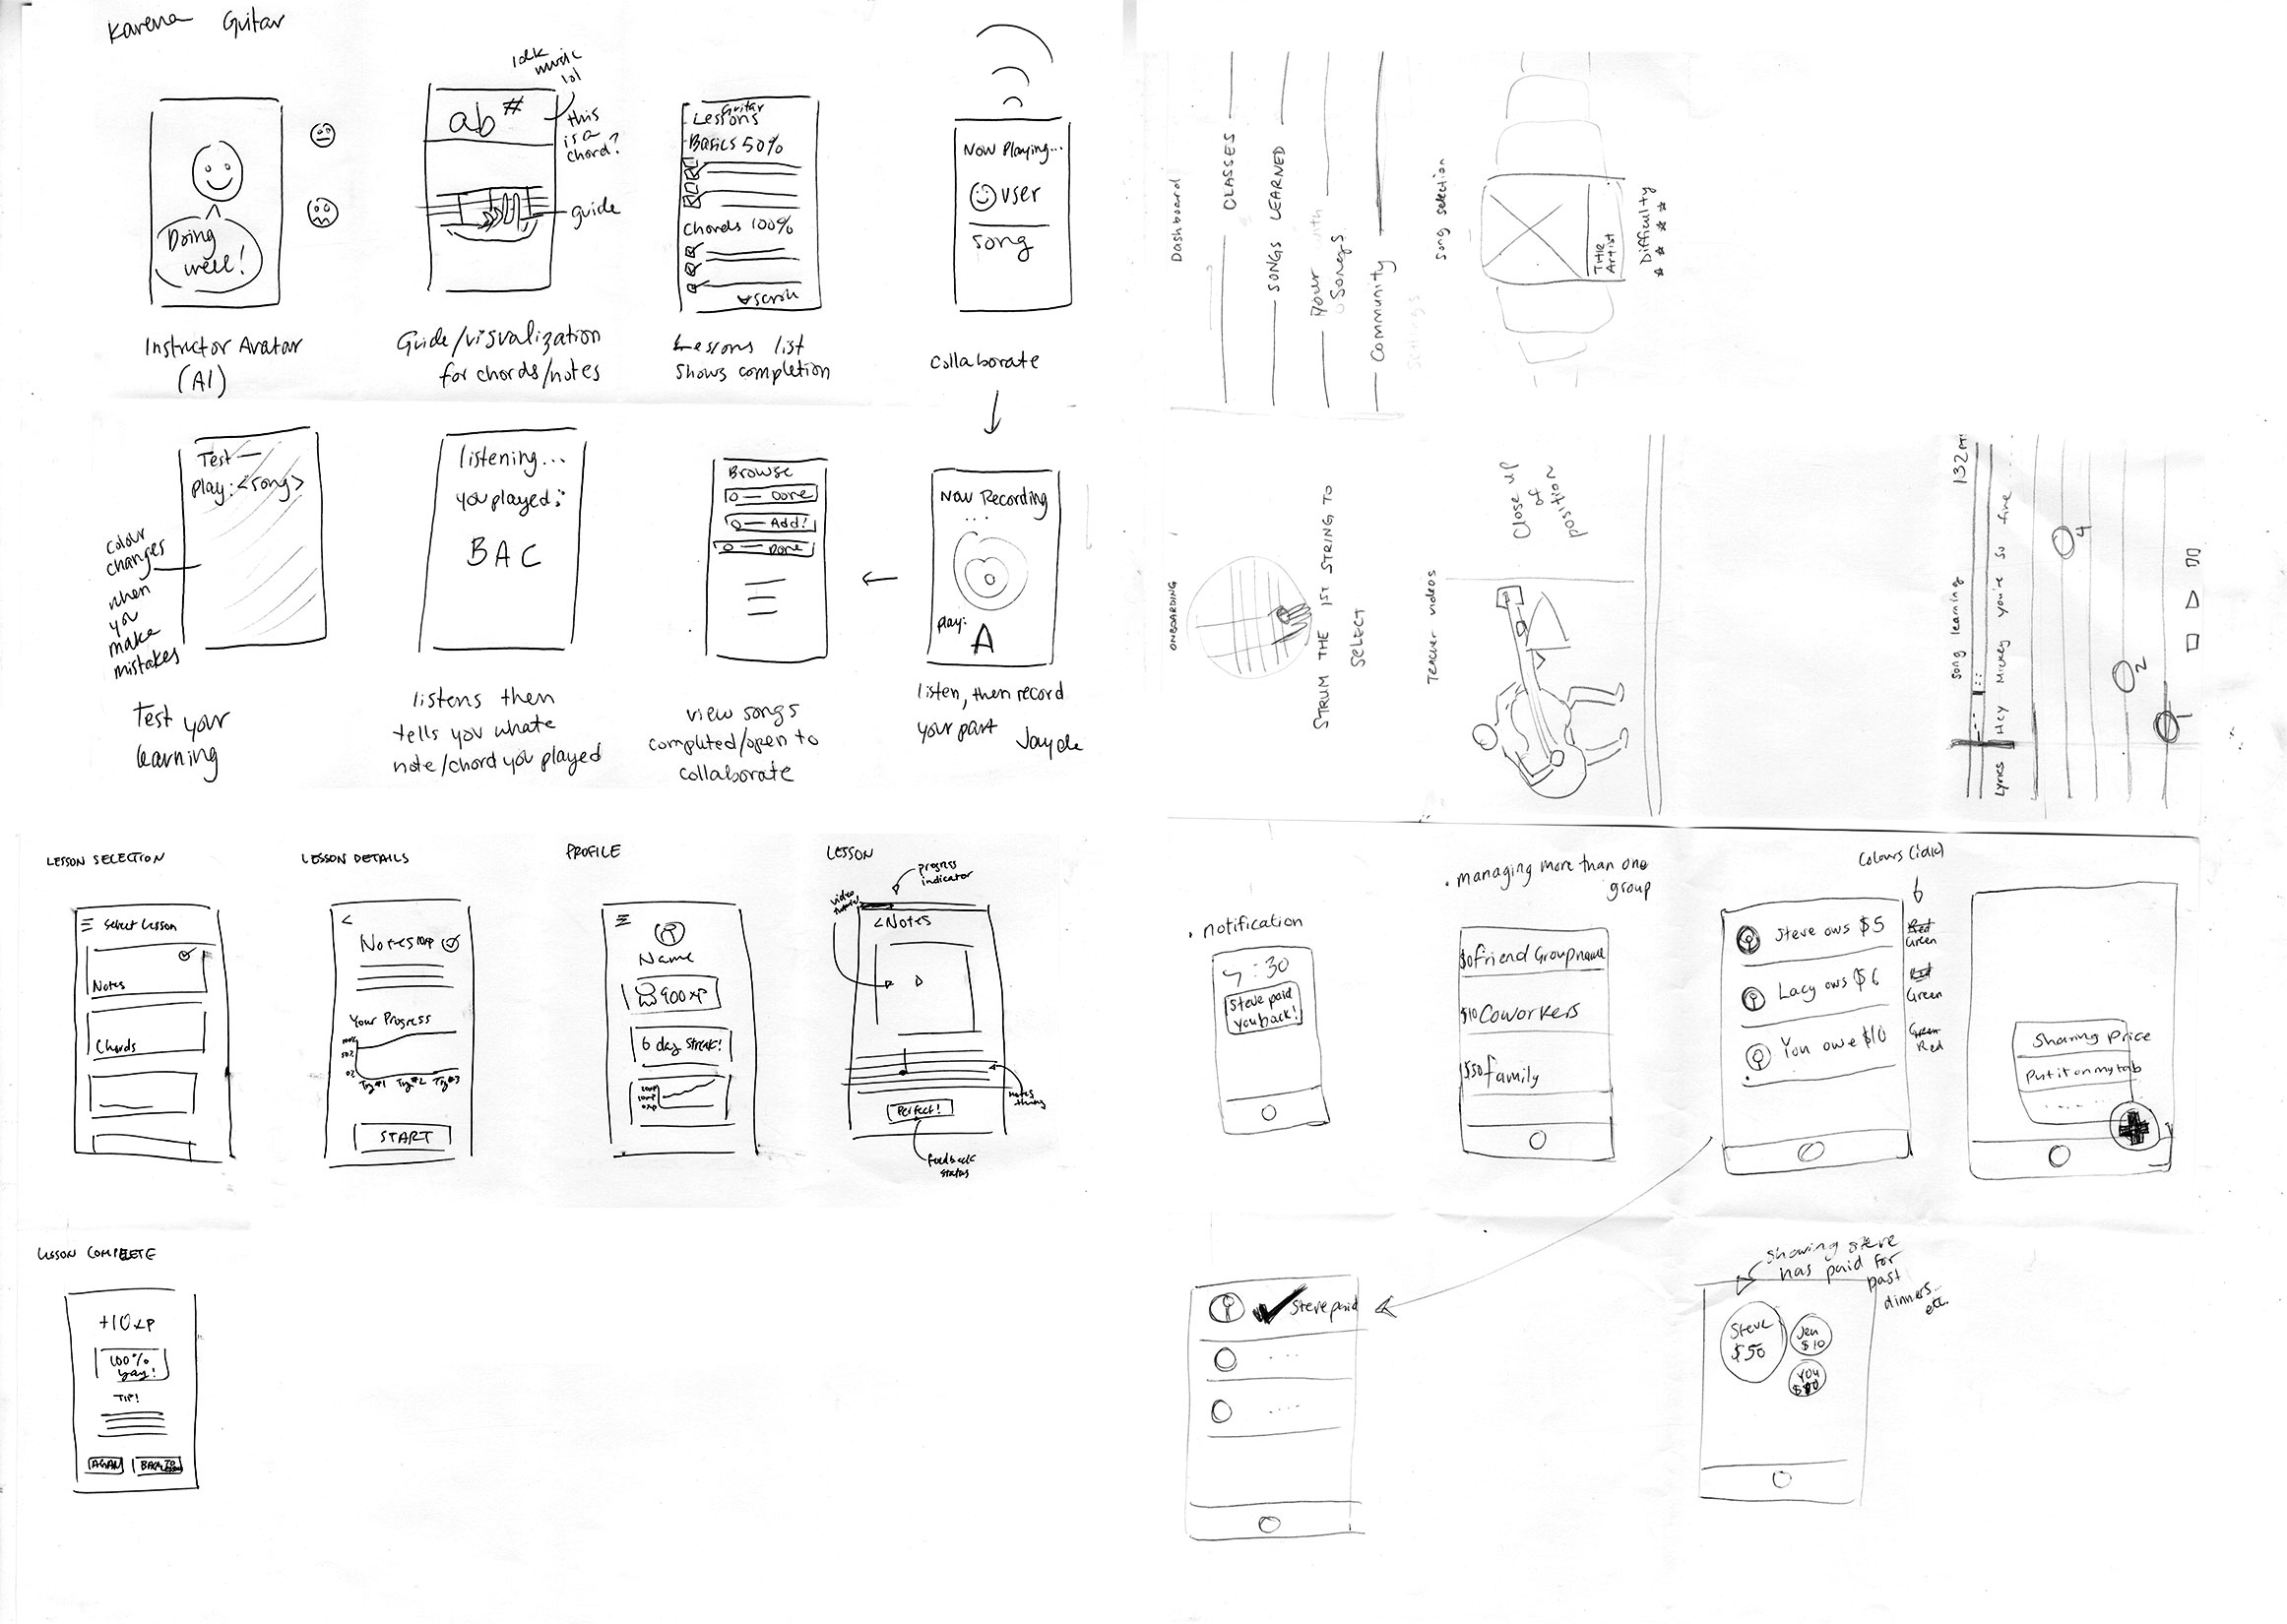 Karena Guitar
Doing
well!
Instructor Avatar
(AI)
idk
music
lol
ab#
this
is a
chord?
guide
Guide/visualization
for chords/notes
Guitar
Lessons
Basics 50%
Chords 100%
scroll
Lessons list
shows completion
Now Playing...
user
song
collaborate
Test —
play: <song>
colour
changes
when
you
make
mistakes
Test your
learning
listening...
you played:
B A C
listens then
tells you whate
note/chord you played
Browse
Done
Add!
Done
view songs
completed/open to
collaborate
Now Recording
...
play:
A
listen, then record
your part
Jayde
LESSON SELECTION
Select Lesson
Notes
Chords
LESSON DETAILS
<
Notes 10xp
Your Progress
100%
50%
0%
Try#1 Try#2 Try#3
START
PROFILE
Name
900 xp
6 day streak!
LESSON
progress
indicator
video
<Notes
notes
thing
Perfect!
feedback
status
LESSON COMPLETE
+10 xp
100%
yay!
TIP!
AGAIN
BACK TO
Dashboard
CLASSES
SONGS LEARNED
your
with
songs
Community
Settings
Song selection
Title
Artist
Difficulty
ONBOARDING
STRUM THE 1ST STRING TO
SELECT
Teacher videos
Close up
of
position
Song learning
132 pts
Lyrics
Hey Mickey you're so fine ...
4
2
1
. notification
7:30
Steve paid
you back!
. managing more than one
group
$0 friend Group name
$10 Coworkers
$50 family
Colours (idk)
Steve ows $5
Red
Green
Lacy ows $6
Red
Green
You owe $10
Green
Red
Sharing price
Put it on my tab
.....
Steve paid
...
....
showing steve
has paid for
past
dinners...
etc.
Steve
$50
Jen
$10
You